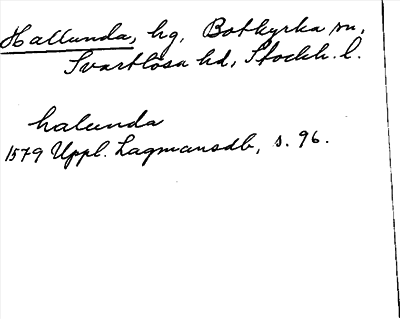 Hallunda, hg, Botkyrka sn,
Svartlösa hd, Stockh. l.
halunda
1579 Uppl. Lagmansdb, s. 96.